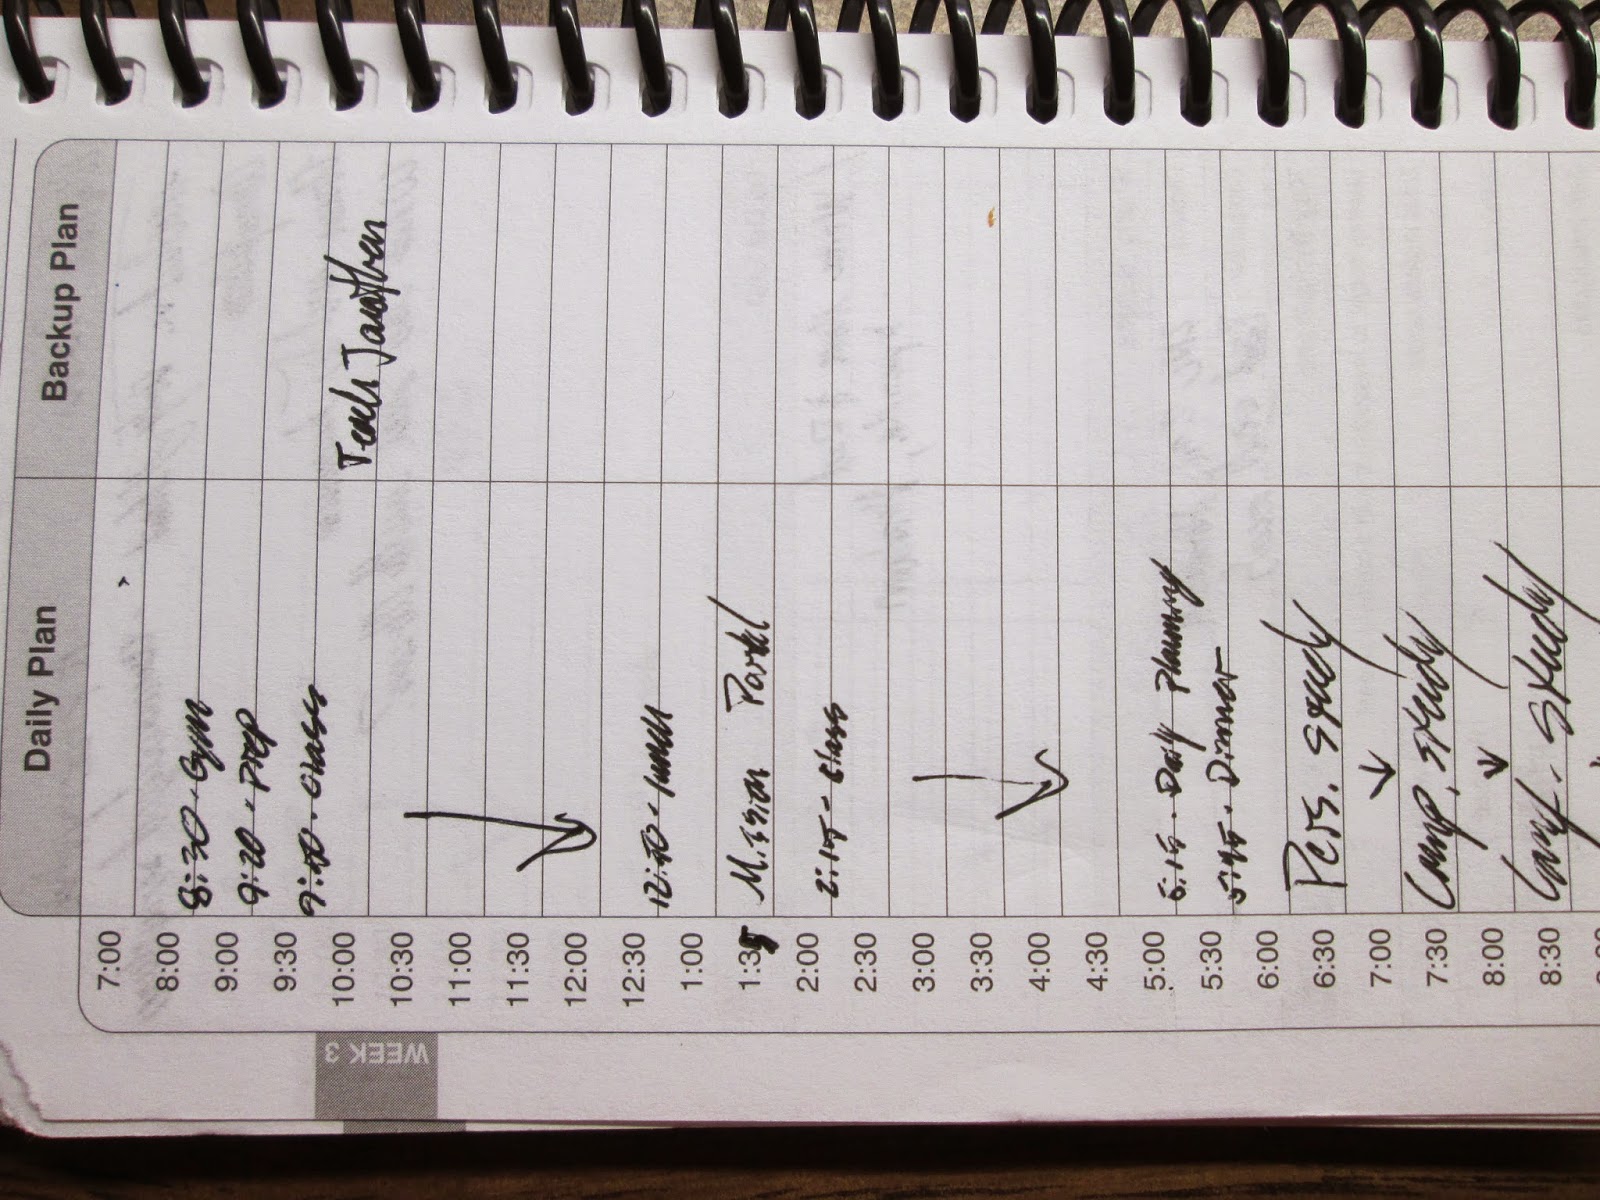 Daily Plan Backup Plan
7:00
8:00
8:30 - Gym
9:00
9:20 - Prep
9:30
9:40 - Class
10:00
Teach Jonathan
10:30
11:00
11:30
12:00
12:30
12:40 - Lunch
1:00
1:35 Mission Portal
2:00
2:15 - Class
2:30
3:00
3:30
4:00
4:30
5:00
5:15 - Daily Planning
5:30
5:45 - Dinner
6:00
6:30 Pers. Study
7:00
7:30 Comp. Study
8:00
8:30 Lang. Study
WEEK 3